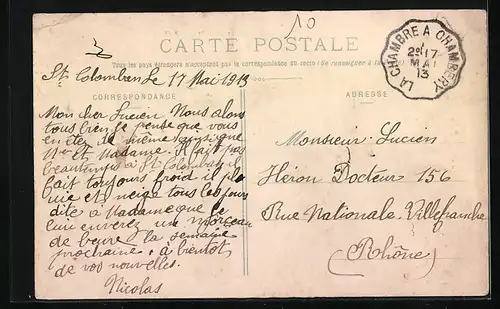 10
3
CARTE POSTALE
Tous les pays étrangers n'acceptent pas la correspondance au recto (Se renseigner à la
LA CHAMBRE A CHAMBERY
2E 17
MAI
13
St Colomban le 17 Mai 1913
CORRESPONDANCE
ADRESSE
Mon cher Lucien. Nous alons
tous bien je pense que vous
en êtes de même ainsi que
et Madame. Il fait pas
beau temps à St Colomban il
fait toujours froid il plu
vie et neige tous les jours
dite à Madame que je
lui enverez une morceau
de beure la semaine
prochaine. à bientot
de vos nouvelles.
Nicolas
Monsieur Lucien
Héron Docteur 156
Rue Nationale. Villefranche
(Rhône)